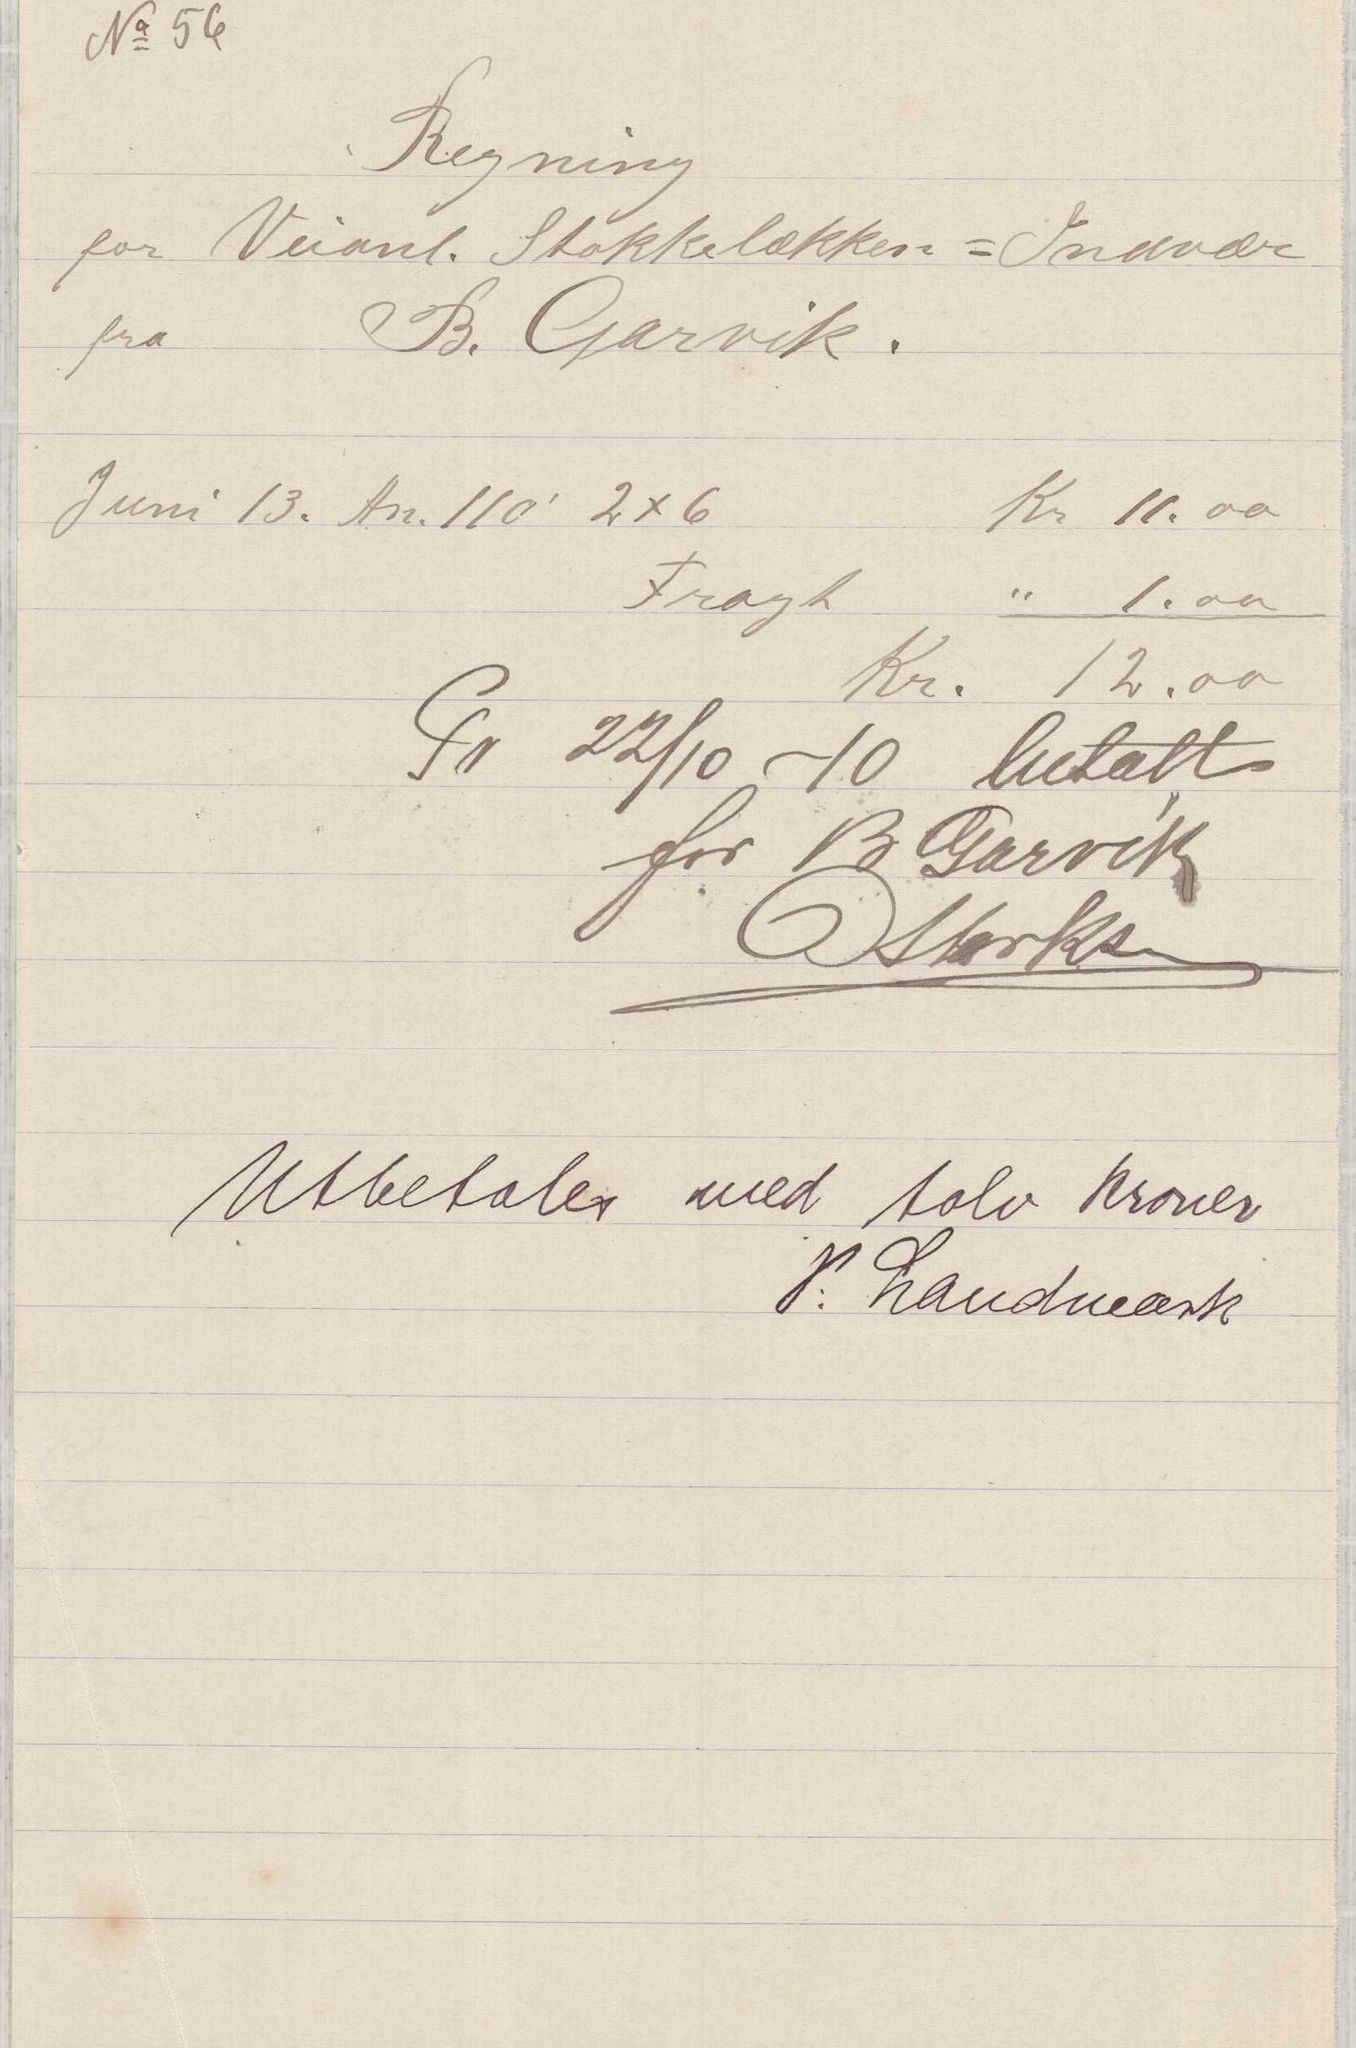 No 56
Regning
for Veianl. Stokkelækken = Indvær
fra B. Garvik.
Juni 13. An. 110' 2x6 Kr 11.00
Fragt " 1.00
Kr. 12.00
22/10 -10 betalt
for B Garvik
Utbetales med tolv kroner
P. Landmark